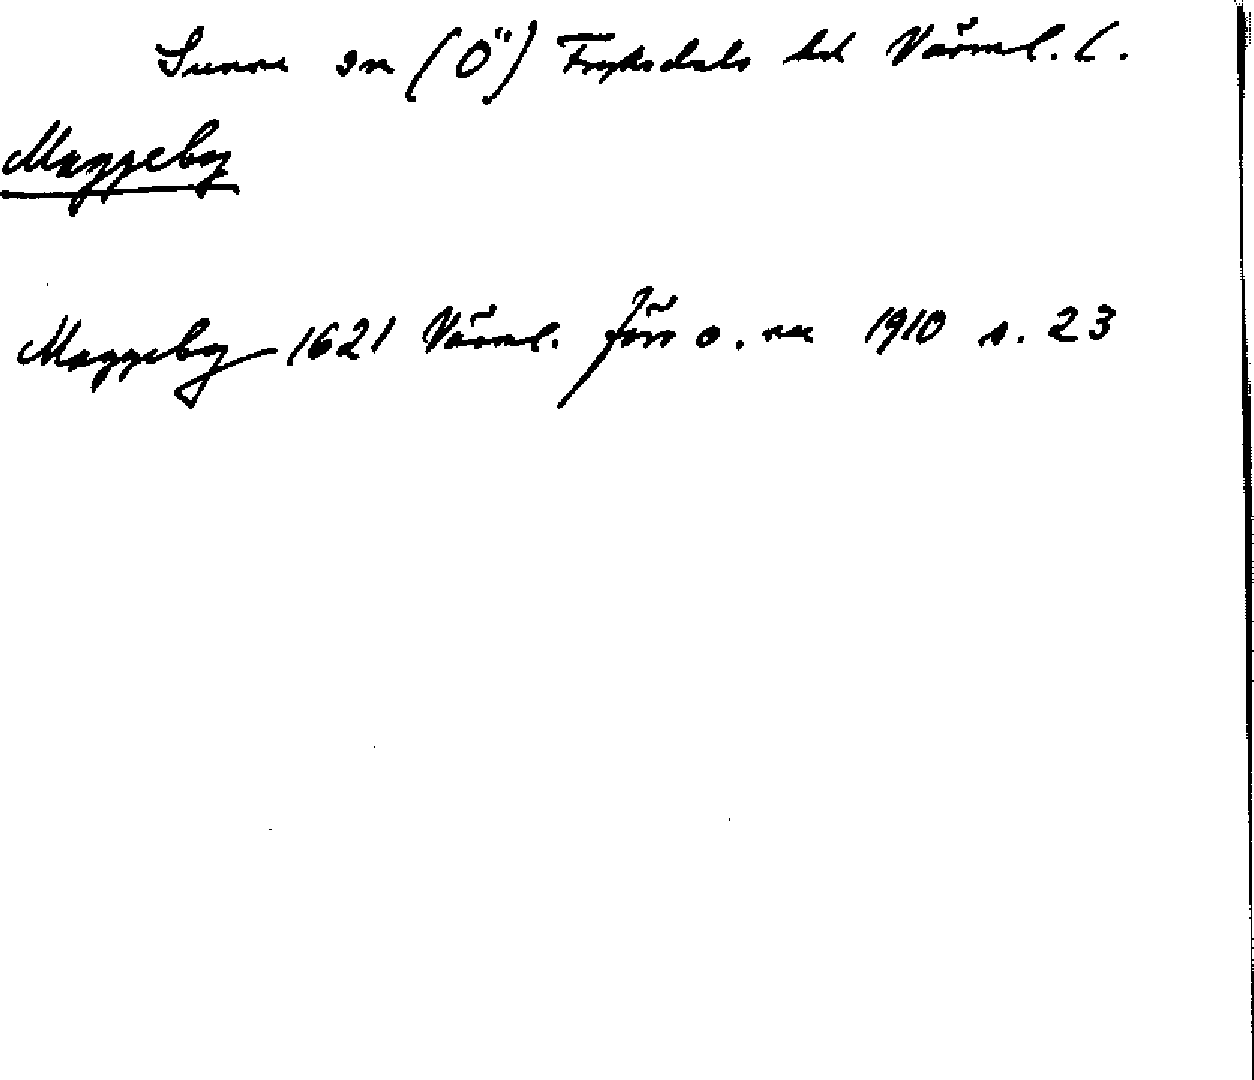 Sunne sn (Ö) Fryksdals hd Värml. l.
Maggeby
Maggeby 1621 Värml. förr o. nu 1910 s. 23